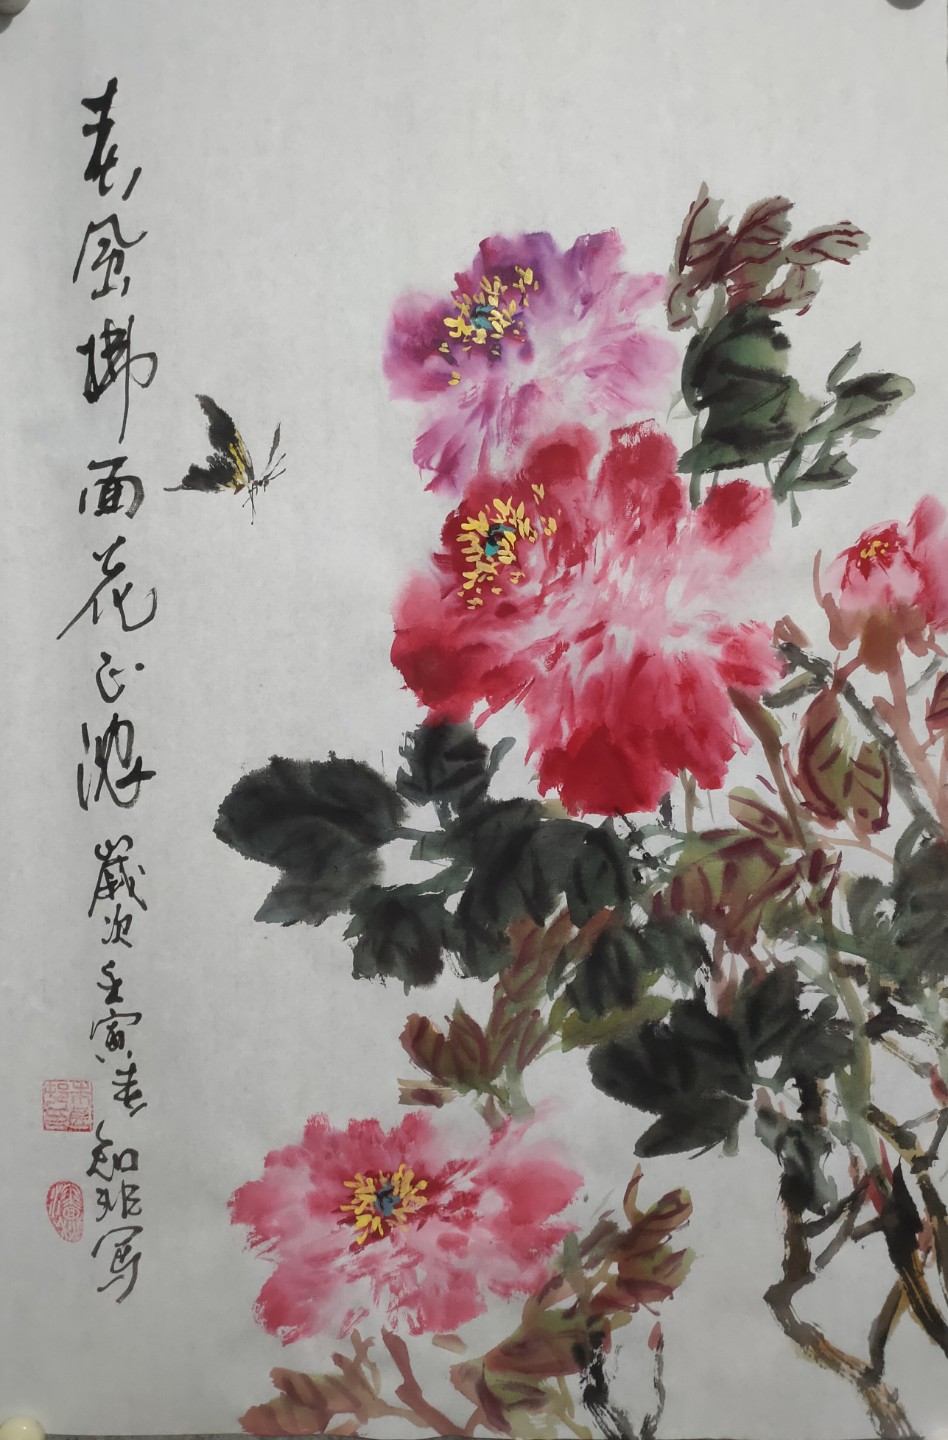 春風拂面花正濃
歲次壬寅春知非写